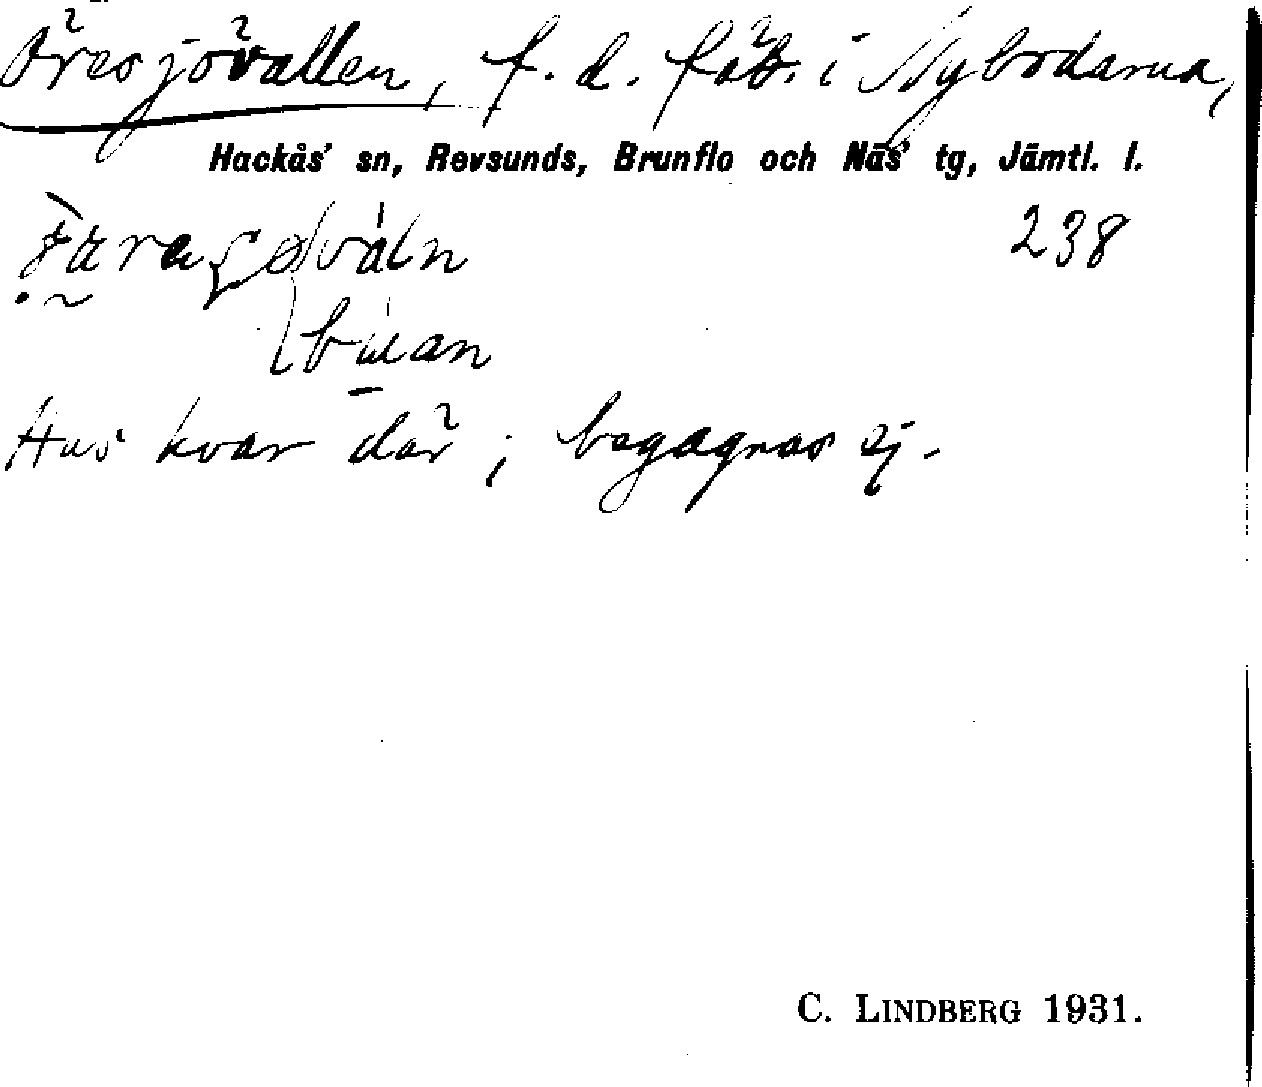 Öresjövallen, f. d. fäb. i Nybodarna,
Hackås' sn, Revsunds, Brunflo och Näs' tg, Jämtl. l.
238
Hus kvar där; begagnas ej.
C. LINDBERG 1931.